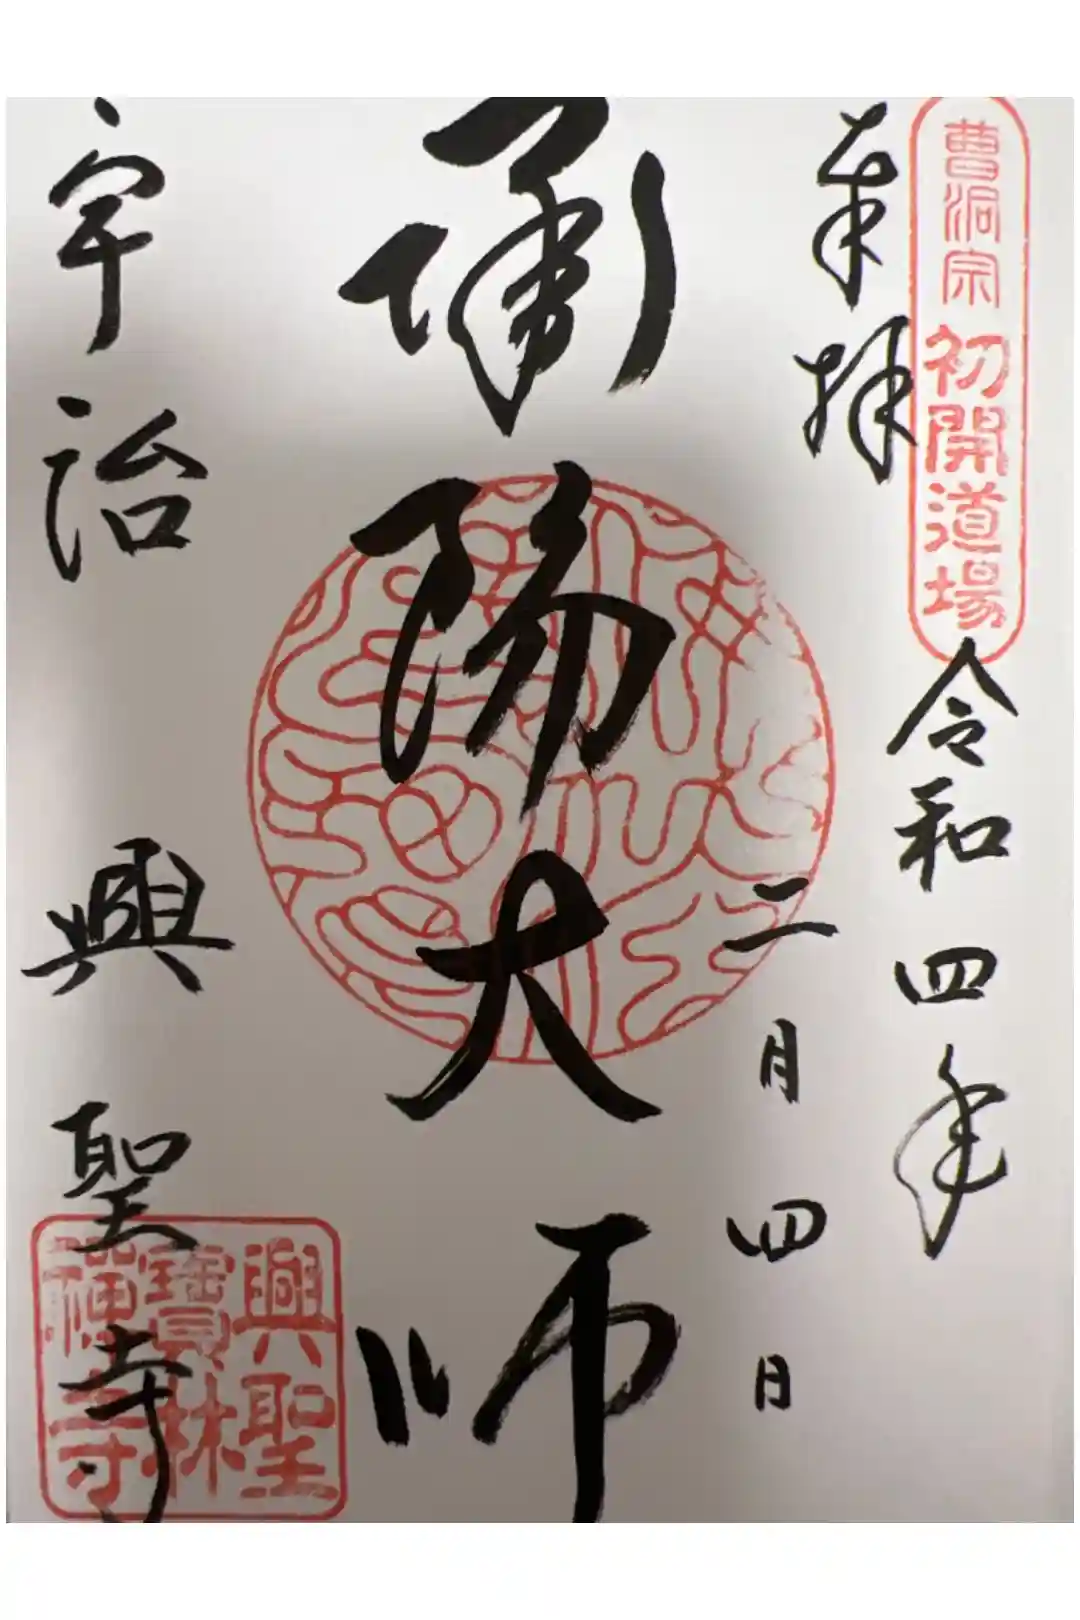 曹洞宗 初開道場
奉拝
令和四年
二月四日
承陽大師
宇治 興聖寺
興聖
寶林
禅寺